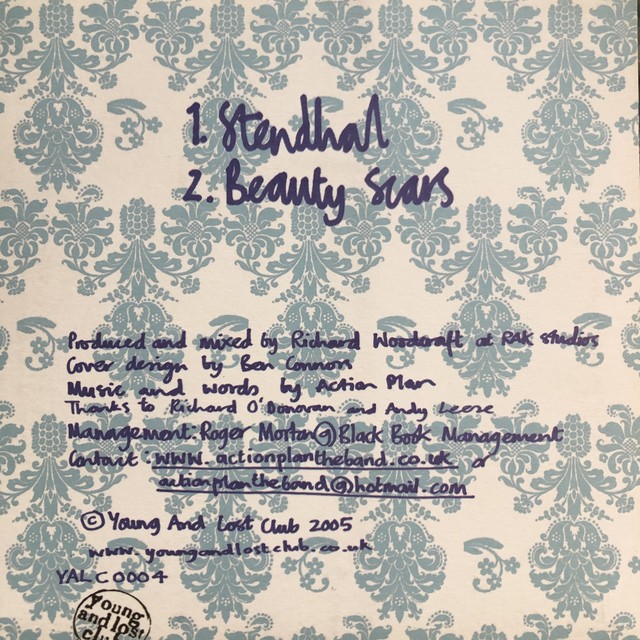 1. Stendhal
2. Beauty Scars
Produced and mixed by Richard Woodcraft at RAK Studios
Cover design by Ben Connors
Music and words by Action Plan
Thanks to Richard O'Donovan and Andy Leese
Management: Roger Morton @ Black Book Management
Contact: www.actionplantheband.co.uk or
actionplantheband@hotmail.com
© Young And Lost Club 2005
www.youngandlostclub.co.uk
YALC0004
young
and lost
club